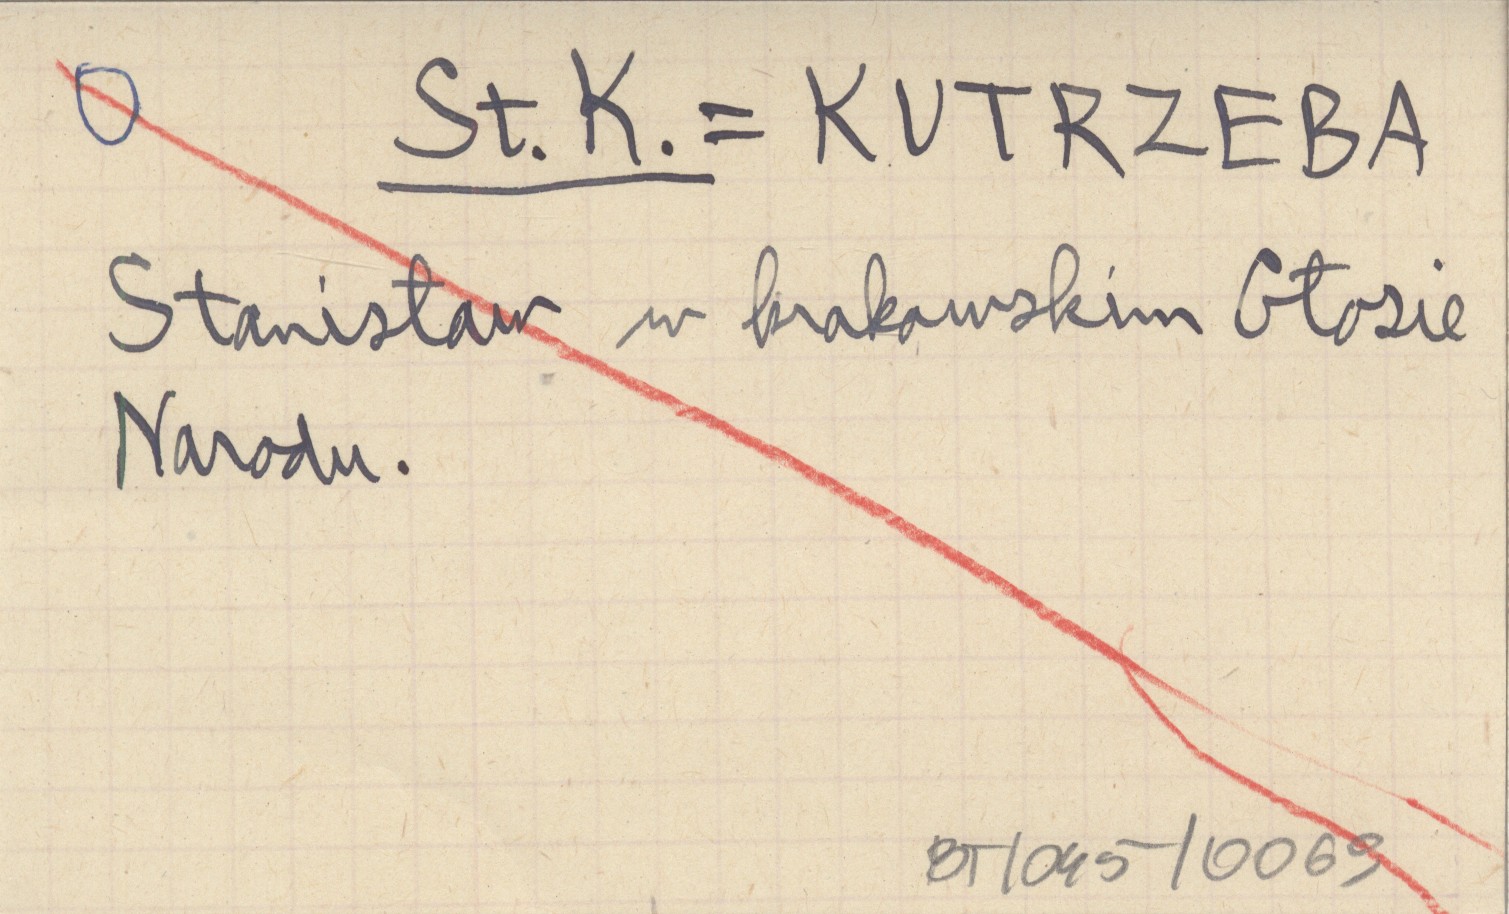 St. K. = KUTRZEBA
Stanisław w krakowskim Głosie
Narodu.
BT/045/0069